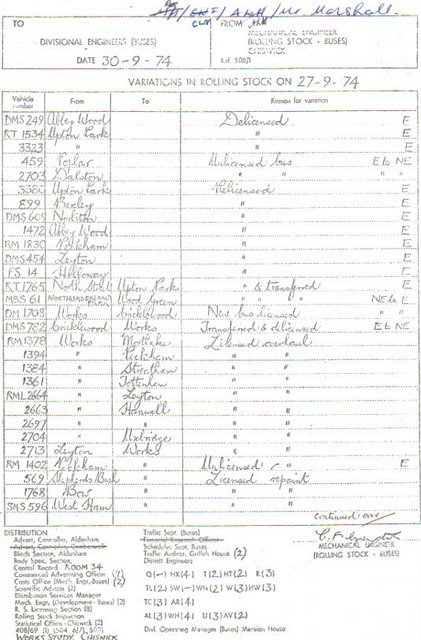 Mr. Marshall.
TO
FROM
DIVISIONAL ENGINEERS (BUSES)
MECHANICAL ENGINEER
(ROLLING STOCK - BUSES)
CHISWICK
DATE 30-9-74
VARIATIONS IN ROLLING STOCK ON 27-9-74
Vehicle number From To Reason for variation
DMS 249 Abbey Wood Delicensed E
RT 1534 Upton Park " E
3323 " " E
459 Poplar Unlicensed bus E to NE
2703 Dalston " " " "
3380 Upton Park Relicensed E
899 Bexley " E
DMS 605 Norbiton " E
1472 Abbey Wood " E
RM 1830 Peckham " E
DMS 454 Leyton " E
FS 14 Holloway " E
RT 1765 North Street Upton Park " & transferred E
MBS 61 NORTHUMBERLAND PARK Wood Green " " NE to E
DM 1708 Works Cricklewood New bus licensed " "
DMS 782 Cricklewood Works Transferred & delicensed E to NE
RM 1378 Works Mortlake Licensed overhaul
1394 " Peckham " "
1384 " Streatham " "
1361 " Tottenham " "
RML 2664 " Leyton " "
2663 " Hanwell " "
2697 " " " "
2704 " Uxbridge " "
2713 Leyton Works " "
RM 1402 Peckham " Unlicensed " E
569 Shepherds Bush " Licensed repaint
1768 Bow " " "
SMS 596 West Ham " " "
continued over
DISTRIBUTION
Advert. Controller, Aldenham
Blinds Section, Aldenham
Body Spec. Section,
Central Record ROOM 34
Commercial Advertising Officer (7)
Costs Office (Mech. Engr.-Buses) (2)
Scientific Adviser (2)
Distribution Services Manager
Mech. Engr. (Development - Buses) (2)
R. S. Licensing Section (3)
Rolling Stock Inspector
Statistical Office - Chiswick (2)
WORKS STUDY CHISWICK
Traffic Supt. (Buses)
Schedules Supt. Buses
Traffic Auditor, Griffith House (2)
District Engineers
TC(3) AR(4)
Divl. Operating Manager (Buses) Mansion House
MECHANICAL ENGINEER
(ROLLING STOCK - BUSES)